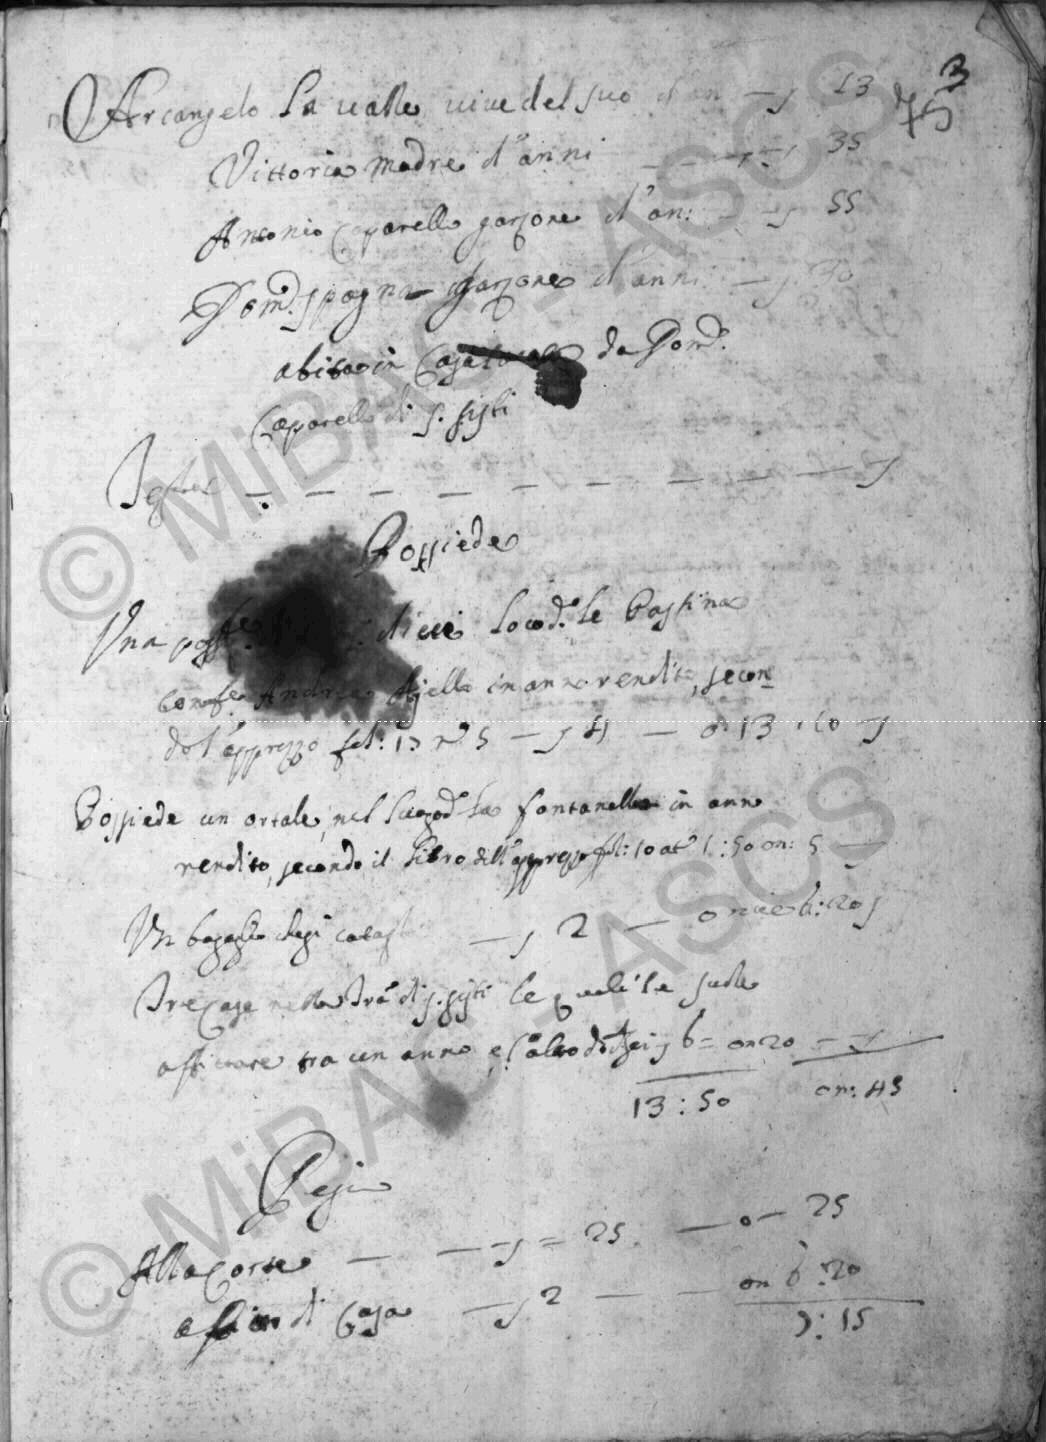 3
75
Arcangelo La valle vive del suo d'an — 13
Vittoria Madre d'anni — 35
Antonio Caparello garzone d'an: — 55
Dom.º Spagna garzone d'anni — 30
abita in Casa da Dom.º
Caparello di S. Sisti
Testa
Possiede
Una dieci loco d.º le Pastine
conf.e Andrea Ajello in anno rendito, secon
do l'apprezzo fol: 13 n.º 5 — 4 — o: 13 : 10
Possiede un ortale, nel luogo d.º la fontanella in anno
rendito, secondo il libro dell'apprezzo fol: 10 at.º 1:50 on: 5
Un — 2 — oncie 6:20
Tre case nella Terra di S. Sisti le quali le suole
affittare tra un anno, e l'altro 6 = on 20
13:50 on: 45
Pesi
Alla Corte — 25 — o — 25
affitto di Casa — 2 — on 6:20
: 15
© MiBAC - ASCS
© MiBAC - ASCS